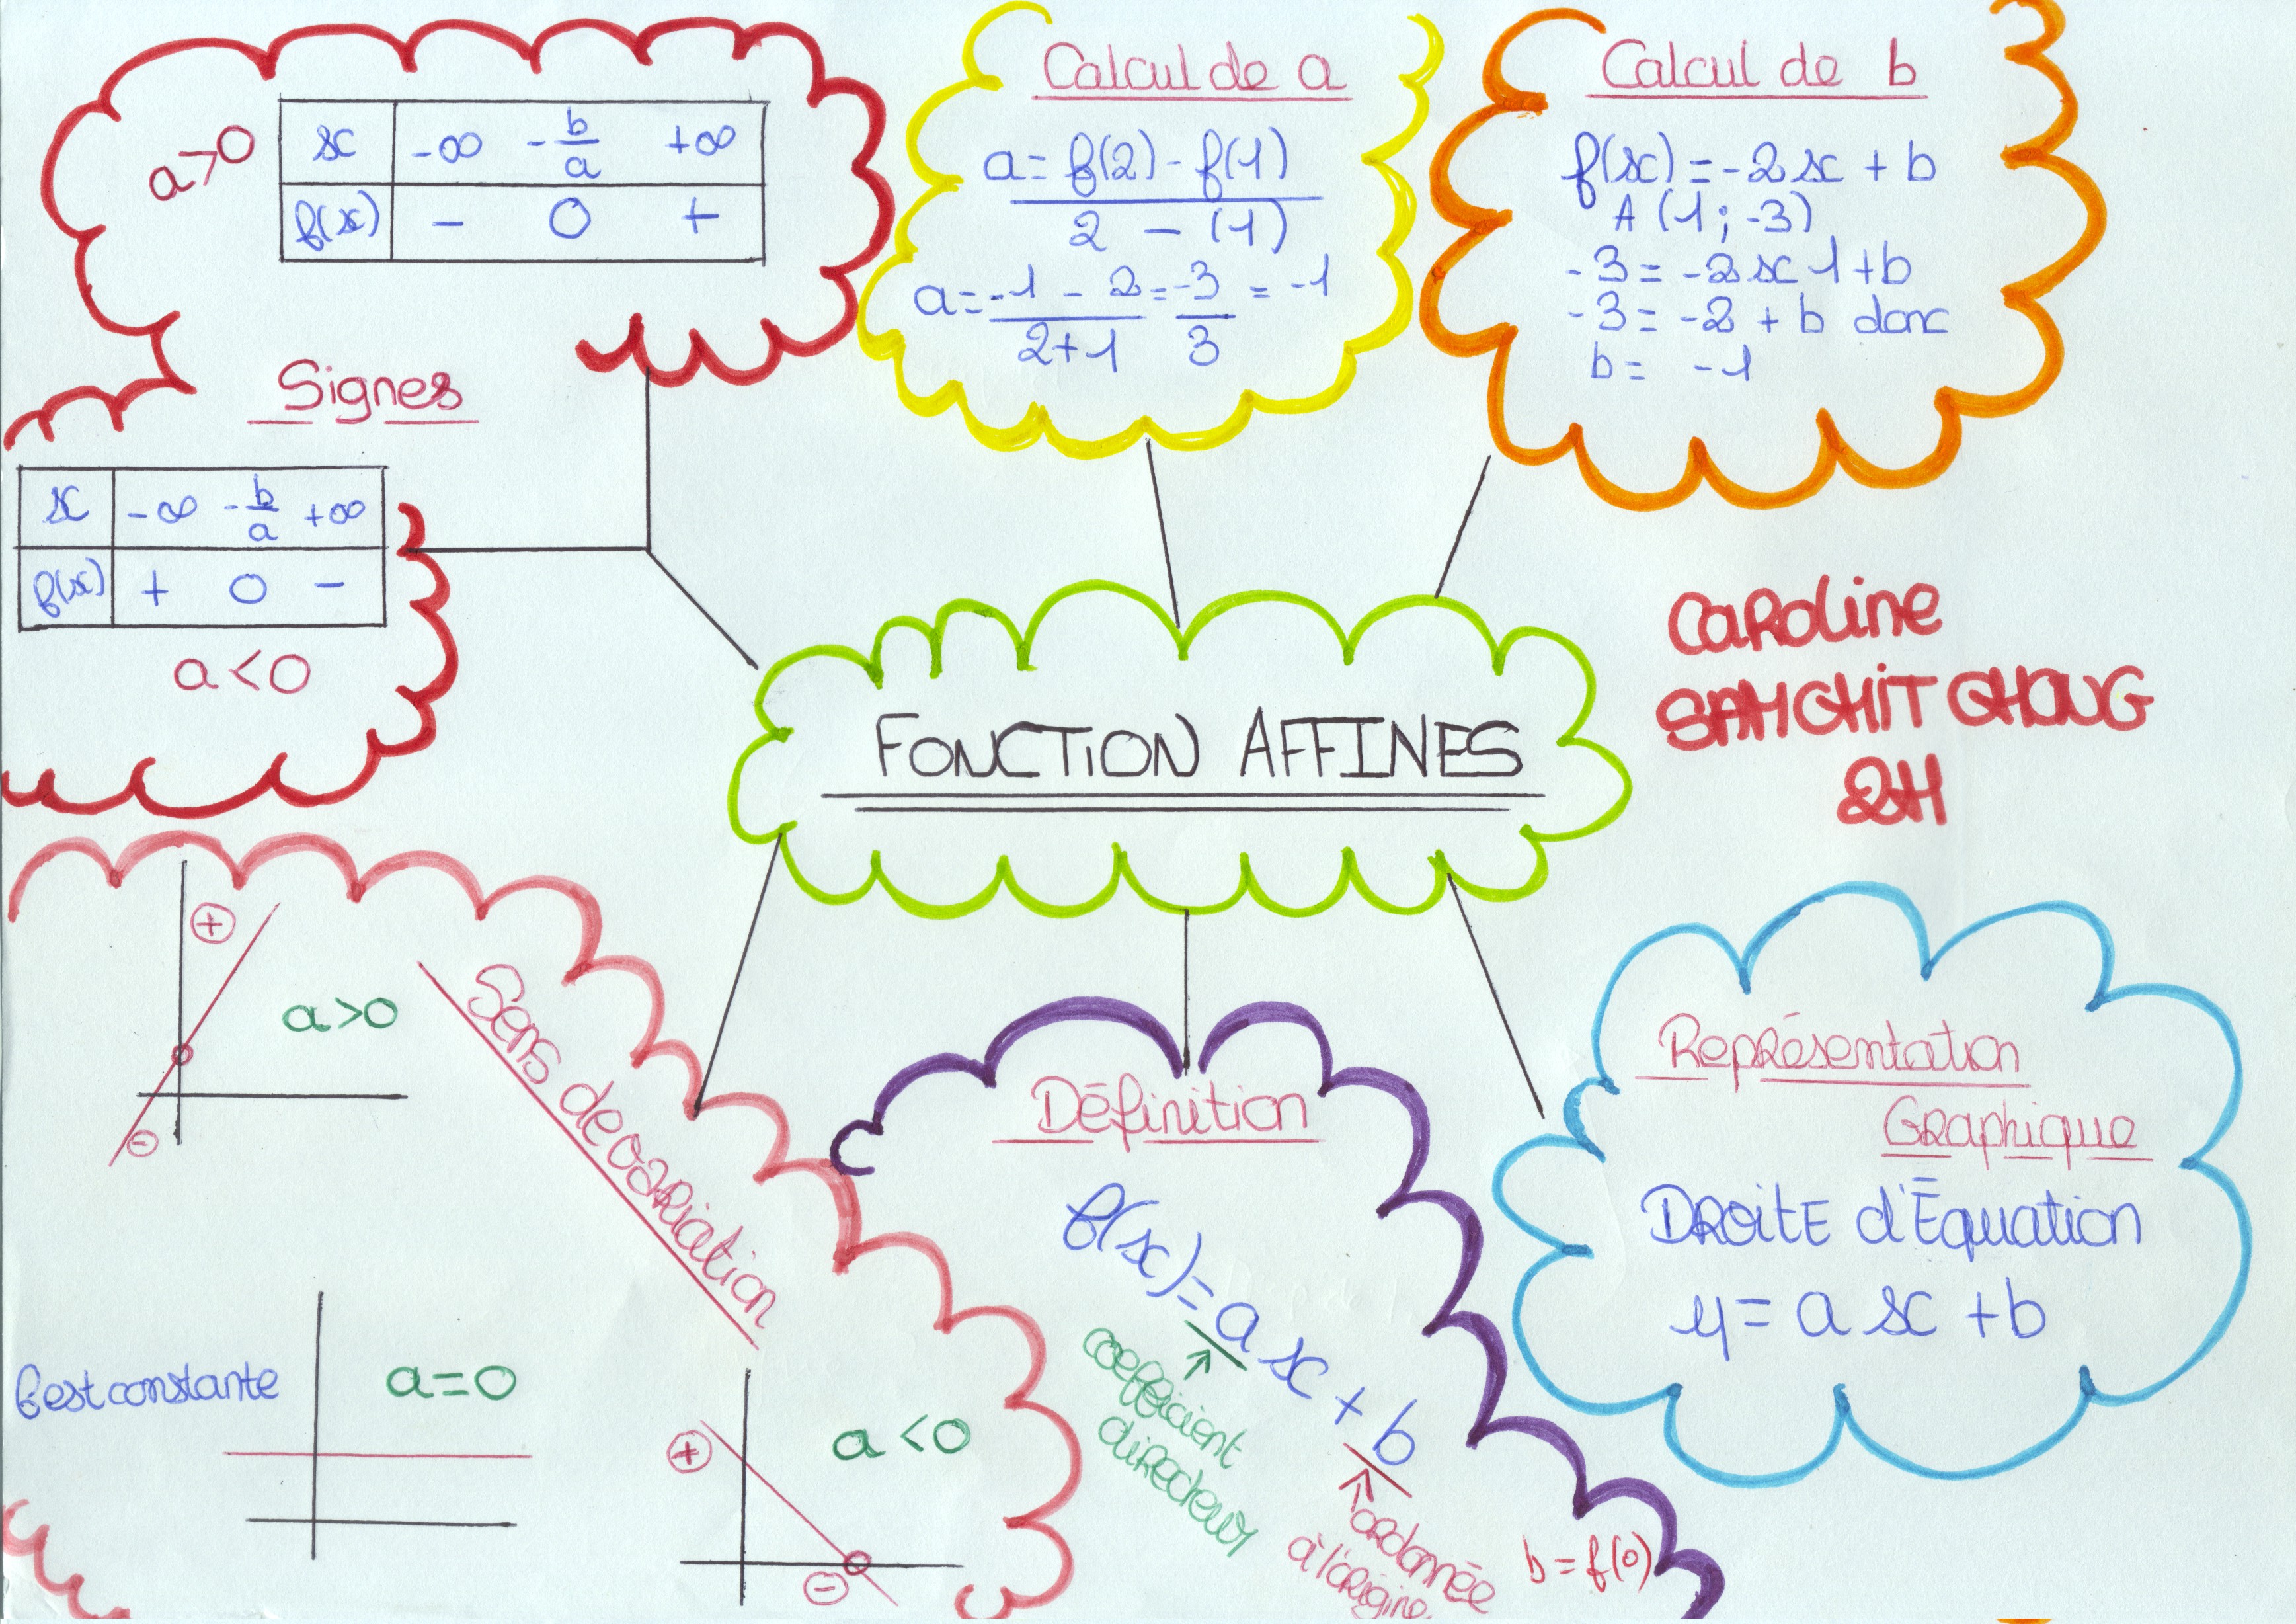 a>0
x -∞ -b/a +∞
f(x) - 0 +
Signes
x -∞ -b/a +∞
f(x) + 0 -
a<0
Calcul de a
a= f(2)-f(1)
2 - (1)
a= -1 - 2 = -3 = -1
2+1 3
Calcul de b
f(x) = -2x + b
A (1; -3)
-3 = -2x1+b
-3 = -2 + b donc
b = -1
FONCTION AFFINES
CAROLINE
SAMCHIT CHONG
2H
Sens de variation
+
a>0
-
f est constante
a=0
+
a<0
-
Définition
f(x)= a x + b
coefficient
directeur
ordonnée
à l'origine
b = f(0)
Représentation
Graphique
DROITE d'Équation
y = a x + b